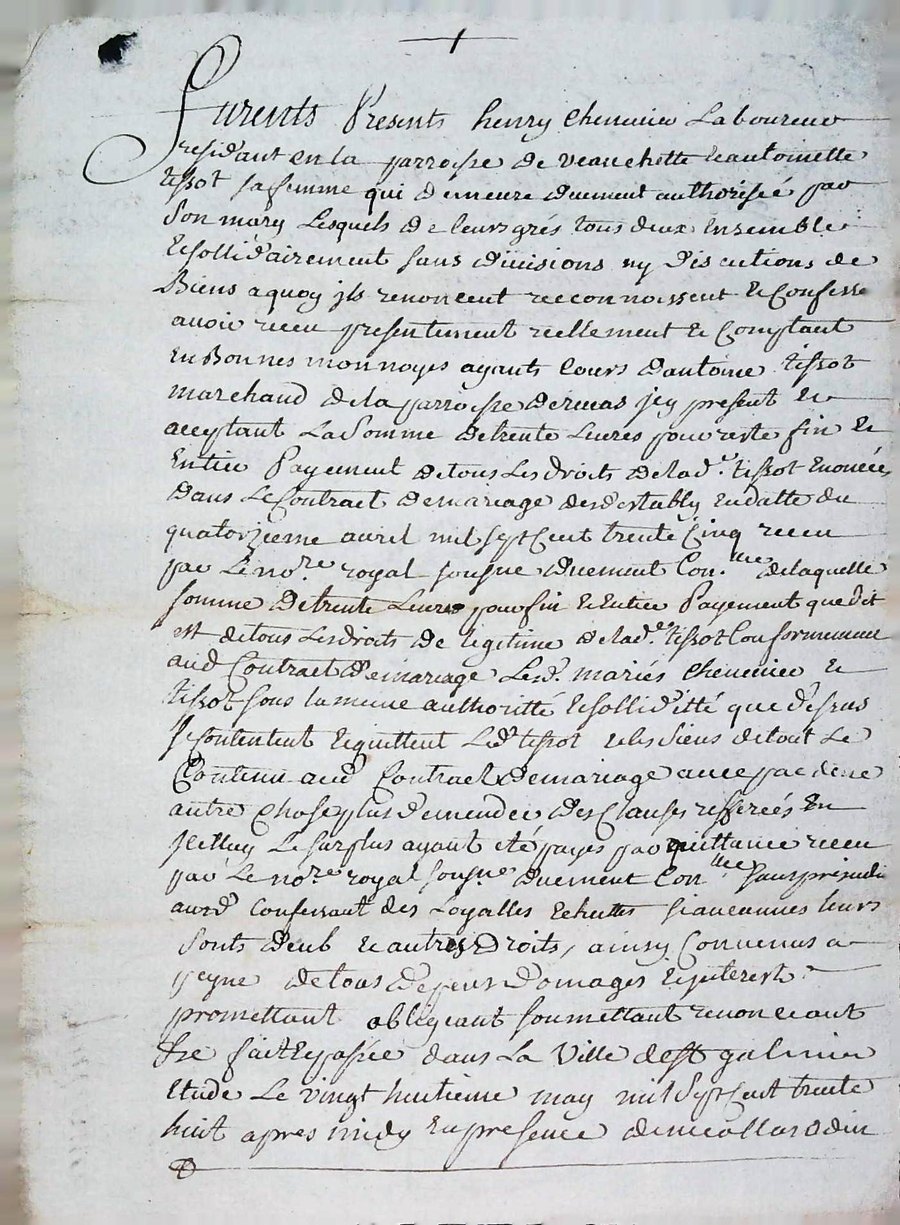 Furents Presents henry Chenevier Laboureur
residant en la parroisse de veauchette & antoinette
tissot sa femme qui demeure duement authorisée par
son mary Lesquels de leurs grés tous deux Ensemble
& sollidairement sans divisions ny discutions de
Biens a quoy jls renoncent reconnoissent & Confesse
avoir receu presentement reellement & Comptant
En Bonnes monnoyes ayants Cours d'antoine tissot
marchand de la parroisse de jcy present &
acceptant La somme de trente Livres pour reste fin &
Entier Payement de tous Les droits de lad.e tissot Enoncées
dans Le Contract de mariage d'estably en datte du
quatorzieme avril mil sept Cent trente Cinq receu
par Le no.re royal sousne duement Con.llee de laquelle
somme de trente Livres pour fin & Entier Payement que dit
est de tous Les droits de legitime de lad.e tissot Conformement
aud Contract de mariage Lesd. mariés Chenevier &
tissot sous la meme authoritté & solliditté que dessus
se Contentent & quittent Led.t tissot & les siens de tout Le
Contenu aud Contract de mariage avec pac de ne
autre Chose plus demender des Clauses refferées En
jcelluy Le surplus ayant eté payes par quittance receu
par Le no.re royal sousn.e duement Con.llee sans prejudice
aux d Confessant des Loyalles Echuttes si aucunnes leurs
sonts deub & autres Droits, ainsy Convenus a
peyne de tous depens domages & jnterest
promettant obligeant soumettant renonceant
&e fait & passée dans La Ville de st galmier
Etude Le vingt huitieme may mil sept Cent trente
huit apres midy En presence de